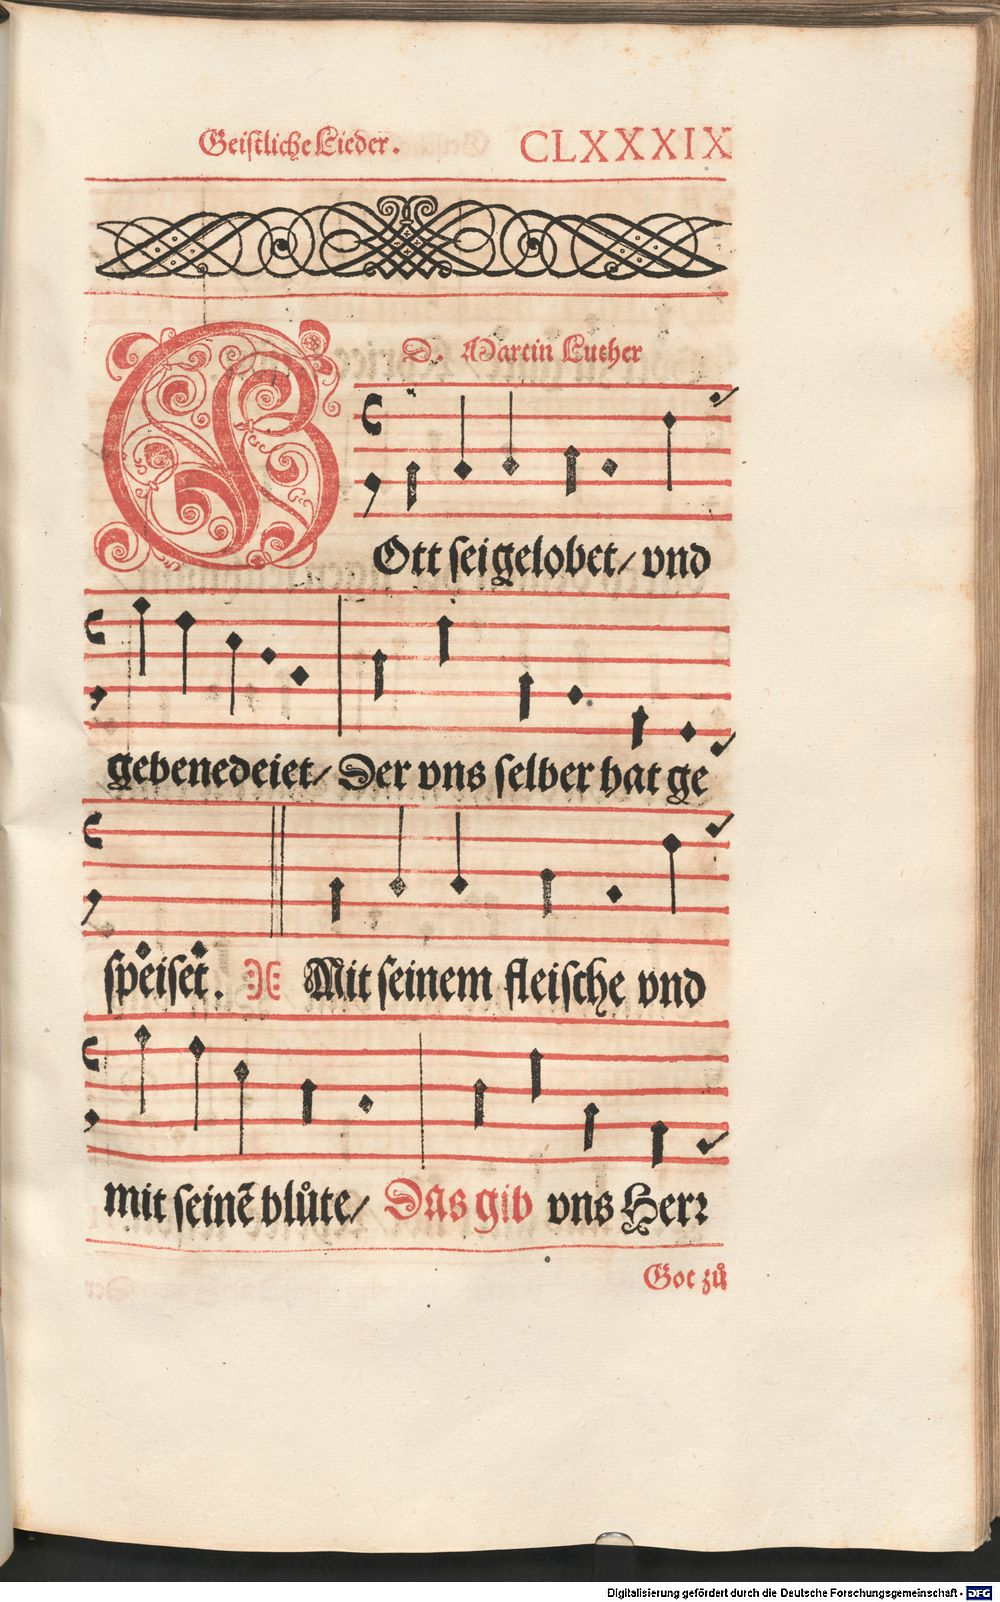 Geistliche Lieder. CLXXXIX
D. Martin Luther
GOtt sei gelobet/ vnd
gebenedeiet/ Der vns selber hat ge
speiset. Mit seinem fleische vnd
mit seinē blůte/ Das gib vns Herr
Got zů
Digitalisierung gefördert durch die Deutsche Forschungsgemeinschaft - DFG